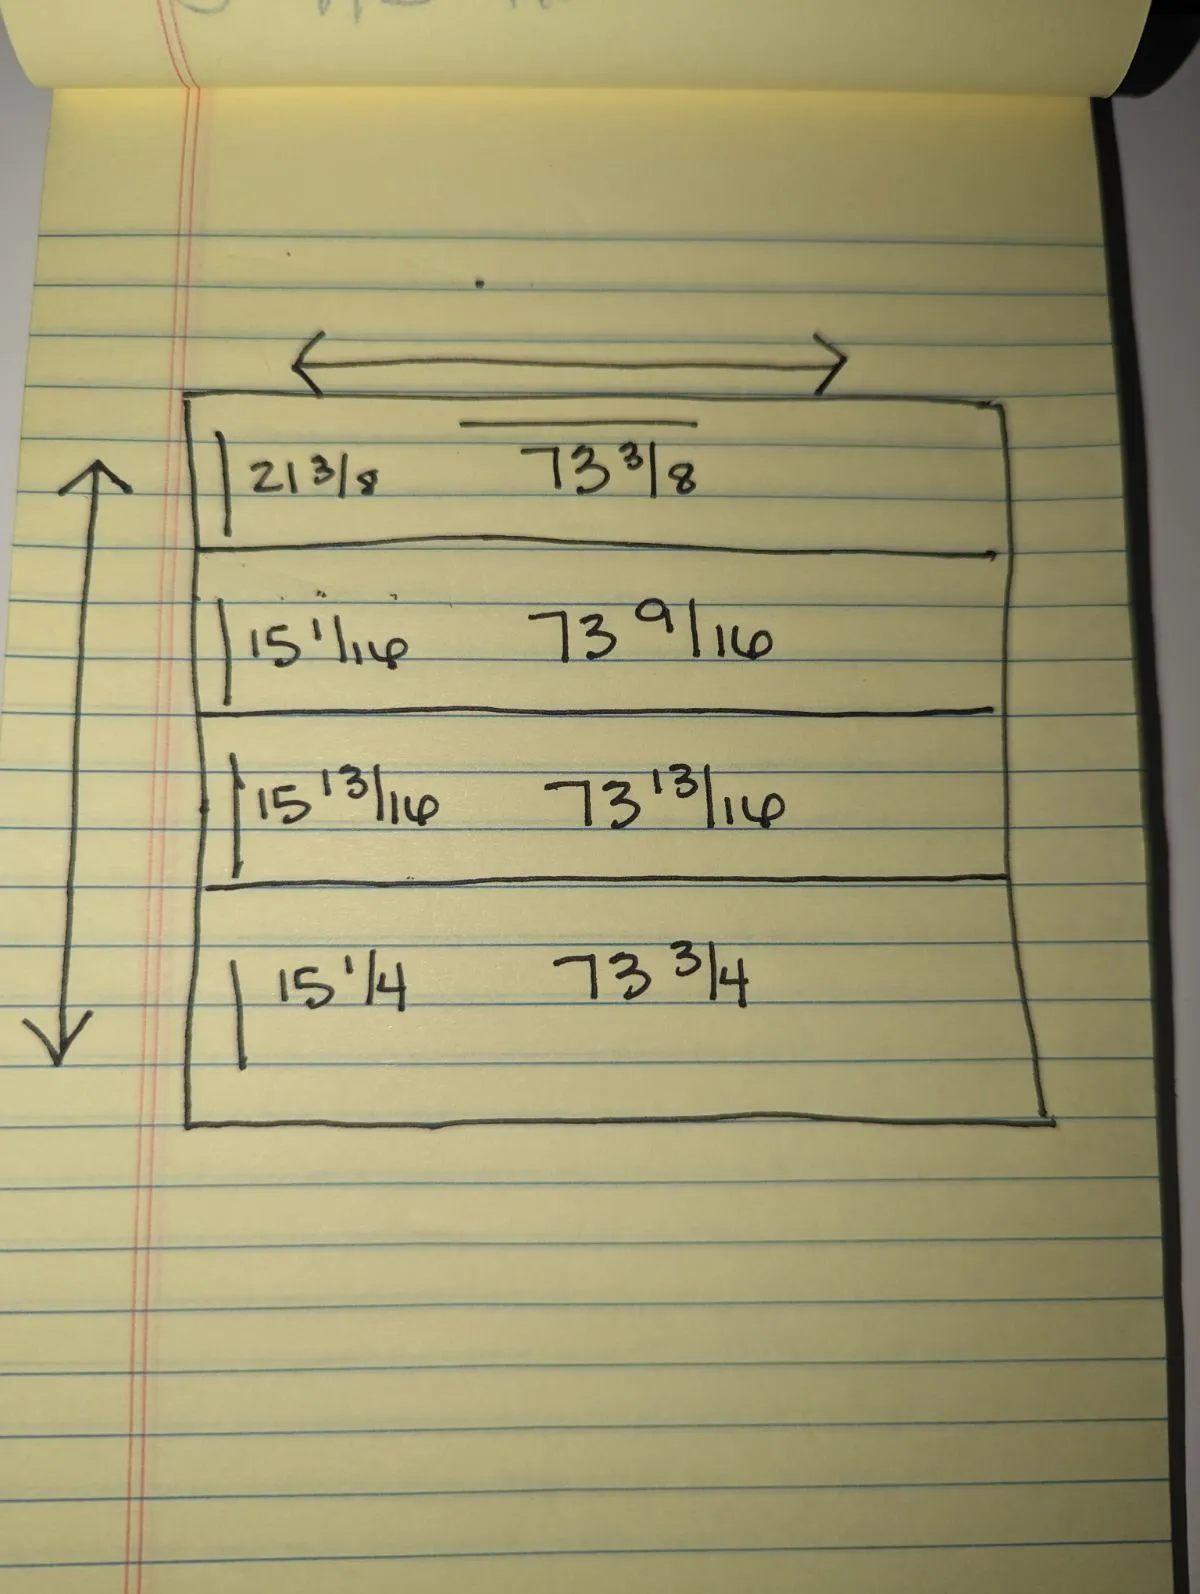 21 3/8 73 3/8
15 1/16 73 9/16
15 13/16 73 13/16
15 1/4 73 3/4